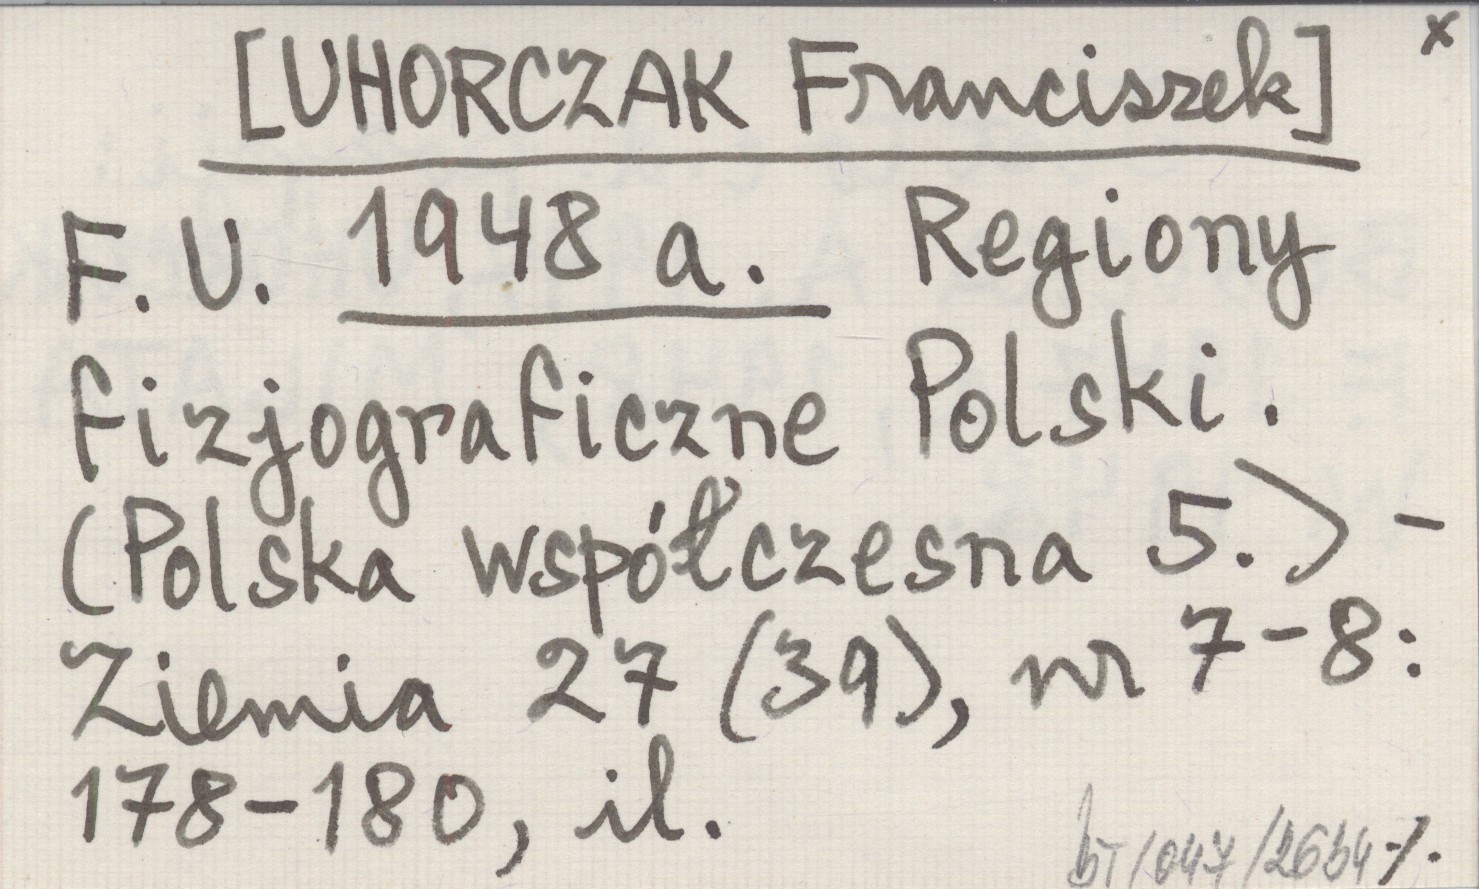 x
[UHORCZAK Franciszek]
F. U. 1948 a. Regiony
fizjograficzne Polski.
(Polska współczesna 5.) -
Ziemia 27 (39), nr 7-8:
178-180, il.